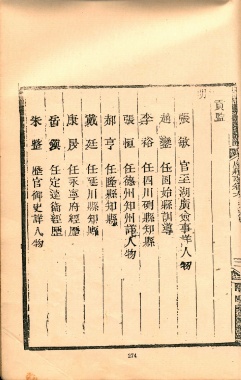 明
貢監
張敏 官至湖廣僉事詳人物
趙鑾 任固始縣訓導
李裕 任四川 縣知縣
張恒 任德州知州詳人物
郝亨 任隆縣知縣
戴廷 任延川縣知縣
康民 任永寧府經歷
岳鎮 任定遠衛經歷
朱整 歷官御史詳人物
274